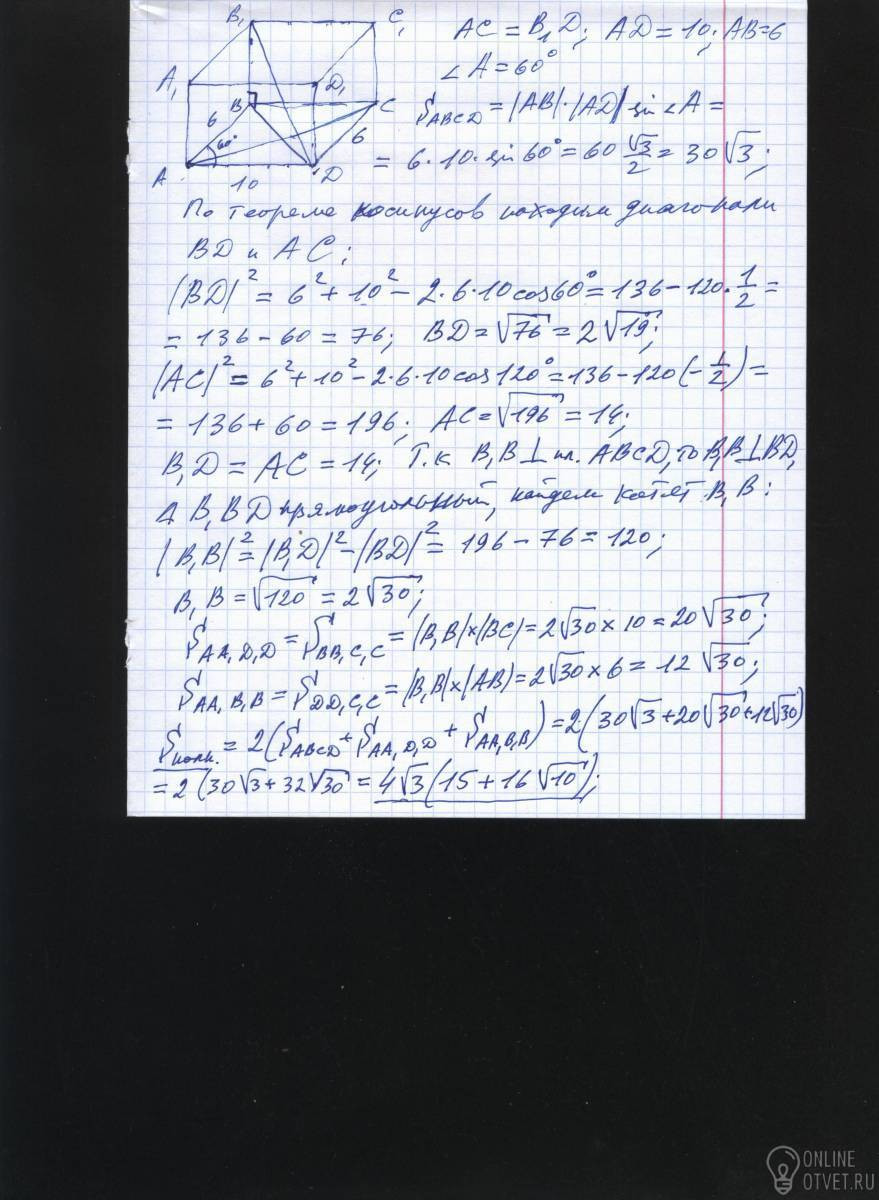 B₁ C₁ AC = B₁D; AD = 10; AB = 6
∠A = 60°
A₁ D₁
B C
6 60° 6
A 10 D
S_ABCD = |AB|·|AD| sin ∠A =
= 6·10·sin 60° = 60 √3/2 = 30√3;
По теореме косинусов находим диагонали
BD и AC;
|BD|² = 6² + 10² - 2·6·10 cos 60° = 136 - 120·1/2 =
= 136 - 60 = 76; BD = √76 = 2√19;
|AC|² = 6² + 10² - 2·6·10 cos 120° = 136 - 120(-1/2) =
= 136 + 60 = 196; AC = √196 = 14;
B₁D = AC = 14; Т.к B₁B ⊥ пл. ABCD, то B₁B ⊥ BD,
Δ B₁BD прямоугольный, найдем катет B₁B:
|B₁B|² = |B₁D|² - |BD|² = 196 - 76 = 120;
B₁B = √120 = 2√30;
S_AA₁D₁D = S_BB₁C₁C = |B₁B|×|BC| = 2√30 × 10 = 20√30;
S_AA₁B₁B = S_DD₁C₁C = |B₁B|×|AB| = 2√30 × 6 = 12√30;
S_полн. = 2(S_ABCD + S_AA₁D₁D + S_AA₁B₁B) = 2(30√3 + 20√30 + 12√30)
= 2(30√3 + 32√30 = 4√3(15 + 16√10);
ONLINE
OTVET.RU